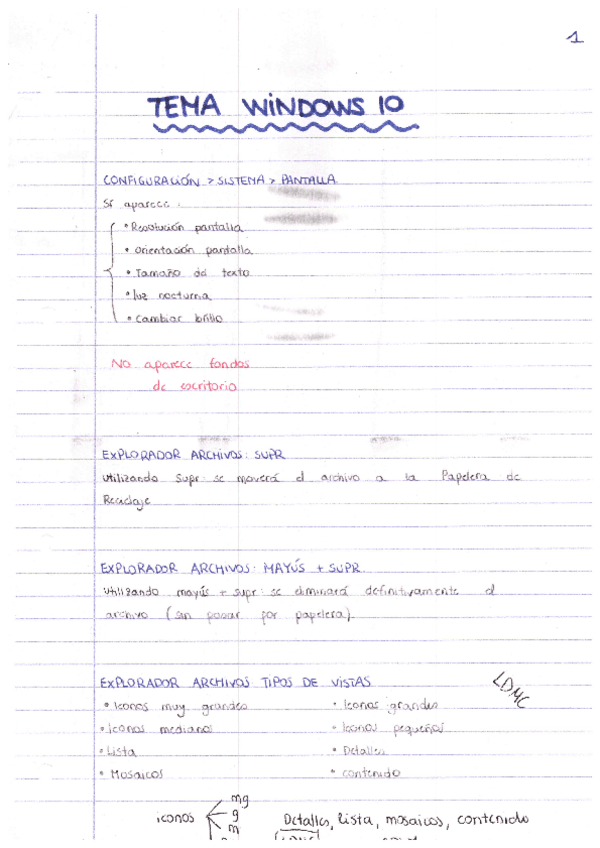 1
TEMA WINDOWS 10
CONFIGURACIÓN > SISTEMA > PANTALLA
Sí aparece:
• Resolución pantalla
• Orientación pantalla
• Tamaño del texto
• luz nocturna
• Cambiar brillo
No aparece fondos
de escritorio
EXPLORADOR ARCHIVOS: SUPR
Utilizando Supr se moverá el archivo a la Papelera de
Reciclaje
EXPLORADOR ARCHIVOS: MAYÚS + SUPR
Utilizando mayús + supr se eliminará definitivamente el
archivo (sin pasar por papelera).
EXPLORADOR ARCHIVOS TIPOS DE VISTAS
LDMC
• Iconos muy grandes • Iconos grandes
• Iconos medianos • Iconos pequeños
• Lista • Detalles
• Mosaicos • Contenido
mg
iconos g Detalles, lista, mosaicos, contenido
m